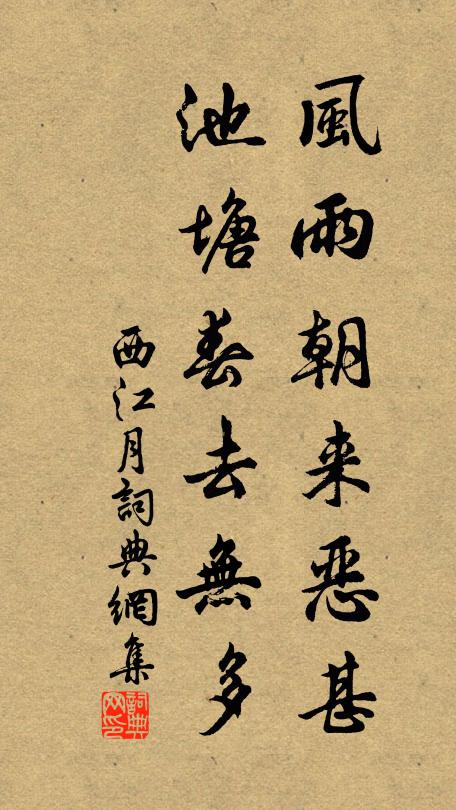 風雨朝来惡甚
池塘春去無多
西江月詞典網集
詞典网印